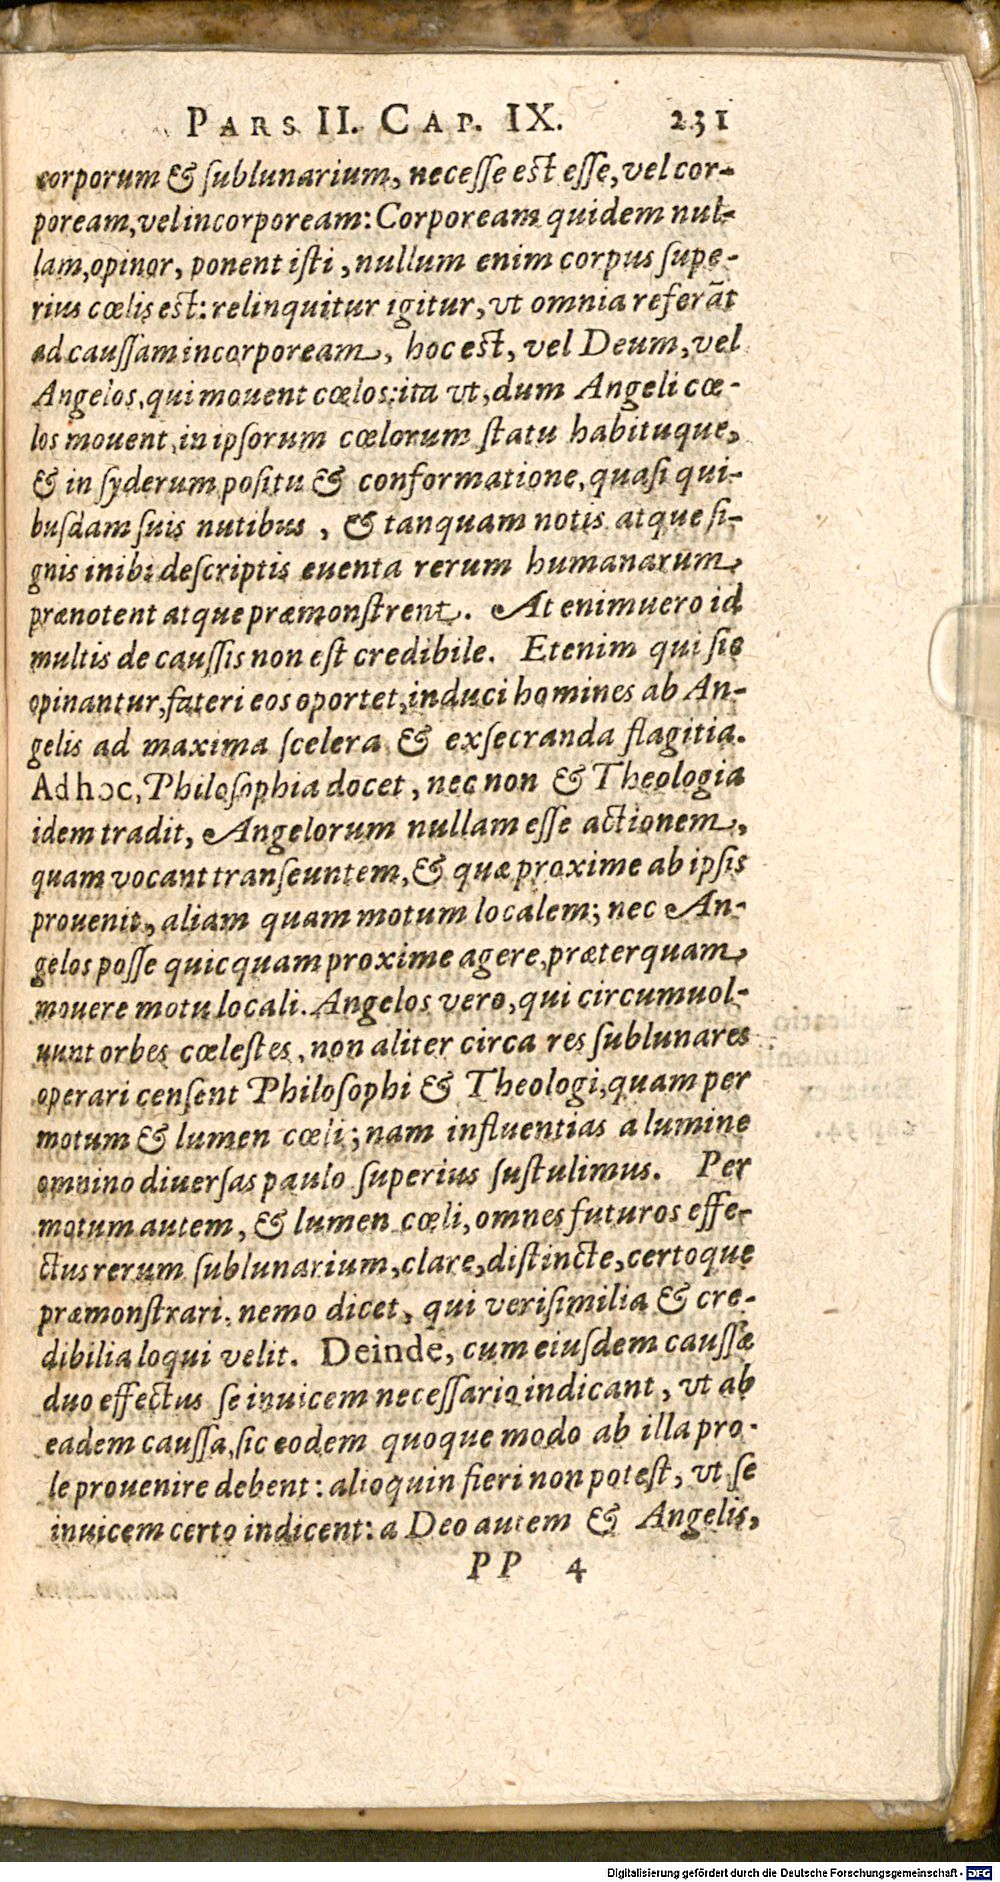 PARS II. CAP. IX. 231
corporum & ſublunarium, neceſſe eſt eſſe, vel cor-
poream, vel incorpoream: Corpoream quidem nul-
lam, opinor, ponent iſti, nullum enim corpus ſupe-
rius cœlis eſt: relinquitur igitur, vt omnia referāt
ad cauſſam incorpoream, hoc eſt, vel Deum, vel
Angelos, qui mouent cœlos: ita vt, dum Angeli cœ-
los mouent, in ipſorum cœlorum ſtatu habituque,
& in ſyderum poſitu & conformatione, quaſi qui-
buſdam ſuis nutibus, & tanquam notis atque ſi-
gnis inibi deſcriptis euenta rerum humanarum
prænotent atque præmonſtrent. At enimuero id
multis de cauſſis non eſt credibile. Etenim qui ſic
opinantur, fateri eos oportet, induci homines ab An-
gelis ad maxima ſcelera & exſecranda flagitia.
Ad hoc, Philoſophia docet, nec non & Theologia
idem tradit, Angelorum nullam eſſe actionem,
quam vocant tranſeuntem, & quæ proxime ab ipſis
prouenit, aliam quam motum localem; nec An-
gelos poſſe quicquam proxime agere, præterquam
mouere motu locali. Angelos vero, qui circumuol-
uunt orbes cœleſtes, non aliter circa res ſublunares
operari cenſent Philoſophi & Theologi, quam per
motum & lumen cœli; nam influentias a lumine
omnino diuerſas paulo ſuperius ſuſtulimus. Per
motum autem, & lumen cœli, omnes futuros effe-
ctus rerum ſublunarium, clare, diſtincte, certoque
præmonſtrari, nemo dicet, qui veriſimilia & cre-
dibilia loqui velit. Deinde, cum eiuſdem cauſſæ
duo effectus ſe inuicem neceſſario indicant, vt ab
eadem cauſſa, ſic eodem quoque modo ab illa pro-
le prouenire debent: alioquin fieri non poteſt, vt ſe
inuicem certo indicent: a Deo autem & Angelis,
PP 4
Digitalisierung gefördert durch die Deutsche Forschungsgemeinschaft - DFG